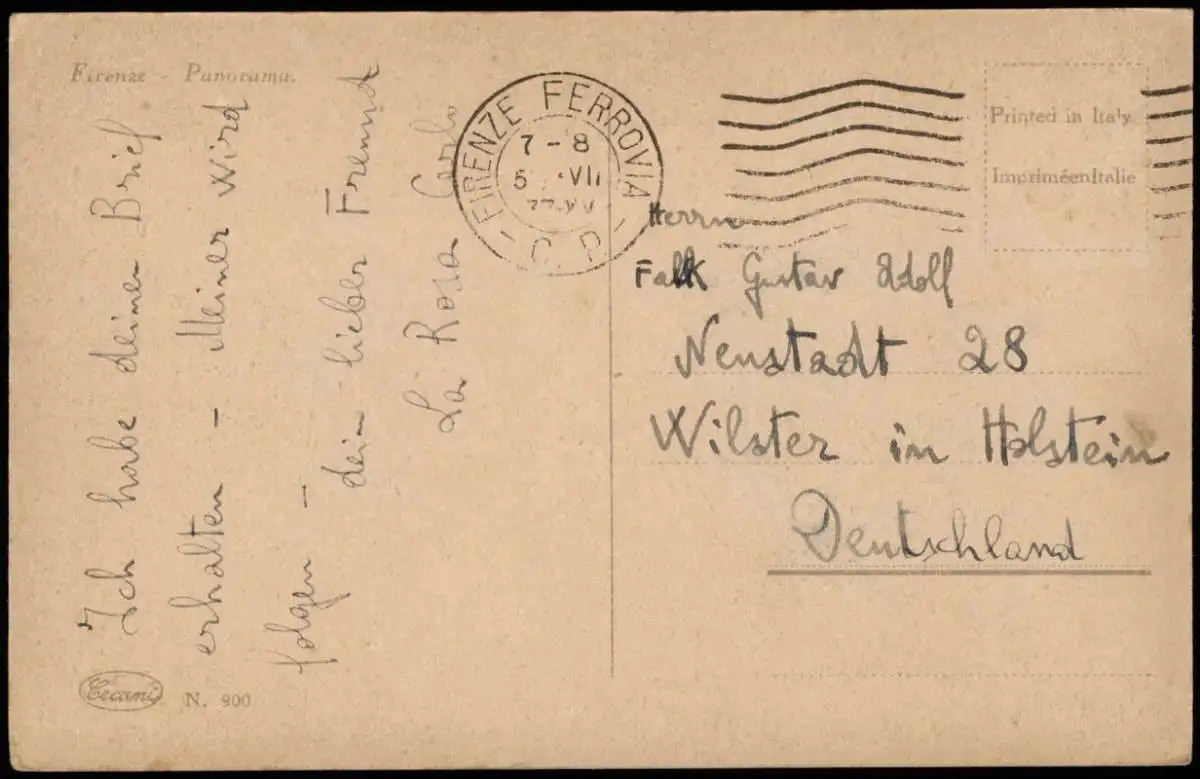 Firenze - Panorama.
Ich habe deinen Brief
erhalten - Meiner wird
folgen -
dein lieber Freund
La Rosa Carlo
Ercani
N. 900
FIRENZE FERROVIA
7 - 8
5 VII
Printed in Italy
ImpriméenItalie
Herrn
Falk Gustav Adolf
Neustadt 28
Wilster in Holstein
Deutschland